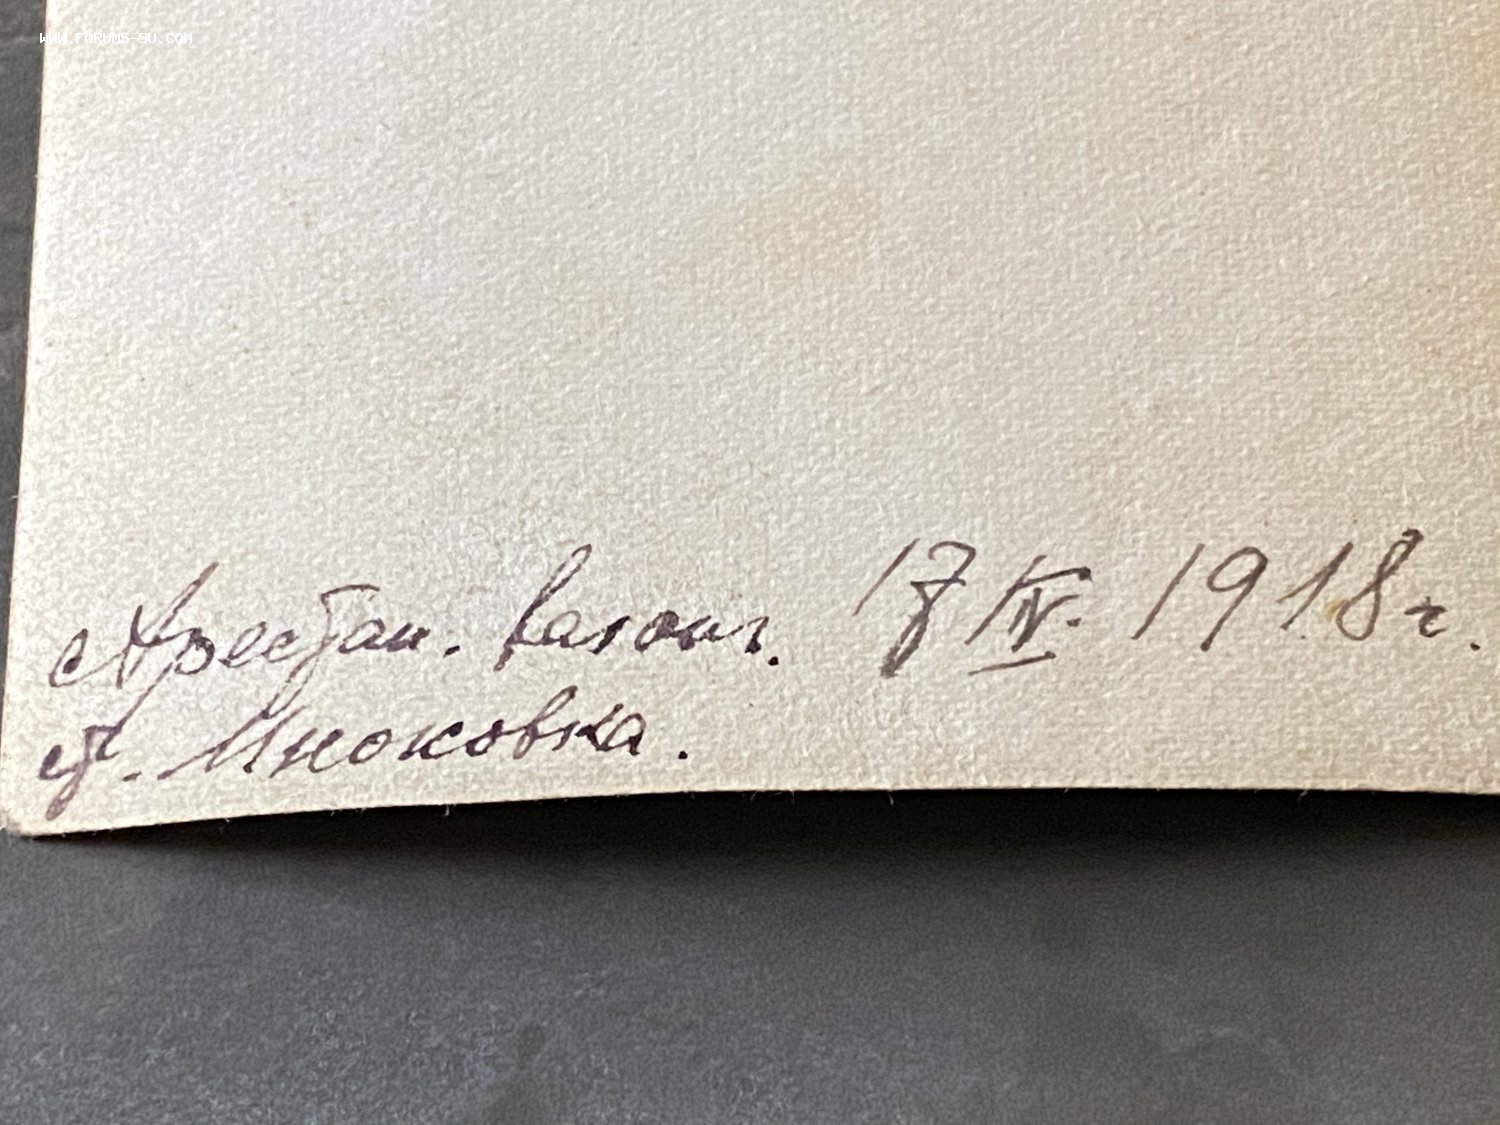 WWW.FORUMS-SU.COM
Арестан. вагонъ. 17 IV. 1918 г.
ст. Иноковка.